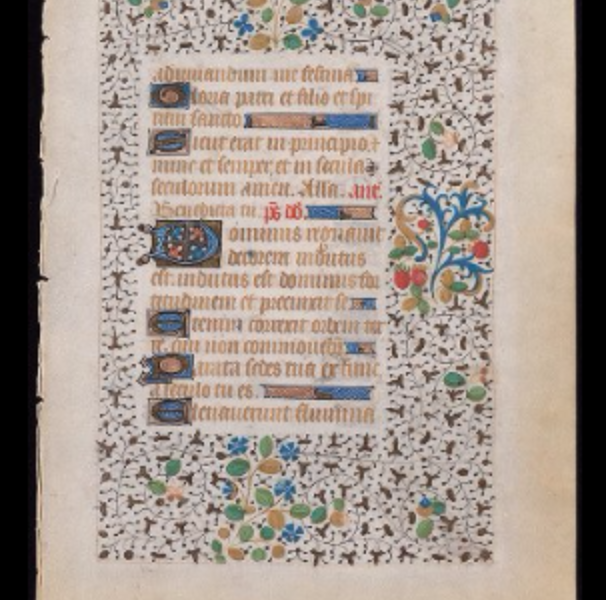 adiuvandum me festina
Gloria patri et filio et spi
ritui sancto
Sicut erat in principio et
nunc et semper, et in secula
seculorum amen. Alla. ane
Benedicta tu. ps dd.
Dominus regnavit
decorem indutus
est indutus est dominus for
titudinem et precinxit se
Etenim firmavit orbem ter
re, qui non commovebit
Parata sedes tua ex tunc
a seculo tu es.
Elevaverunt flumina